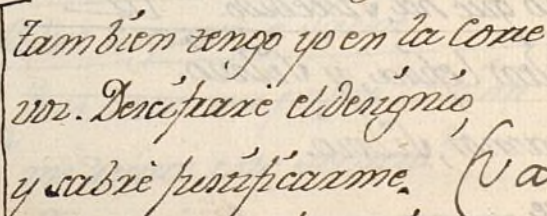 tambien tengo yo en la Corte
voz. Descifrarè el designio,
y sabrè justificarme. (va